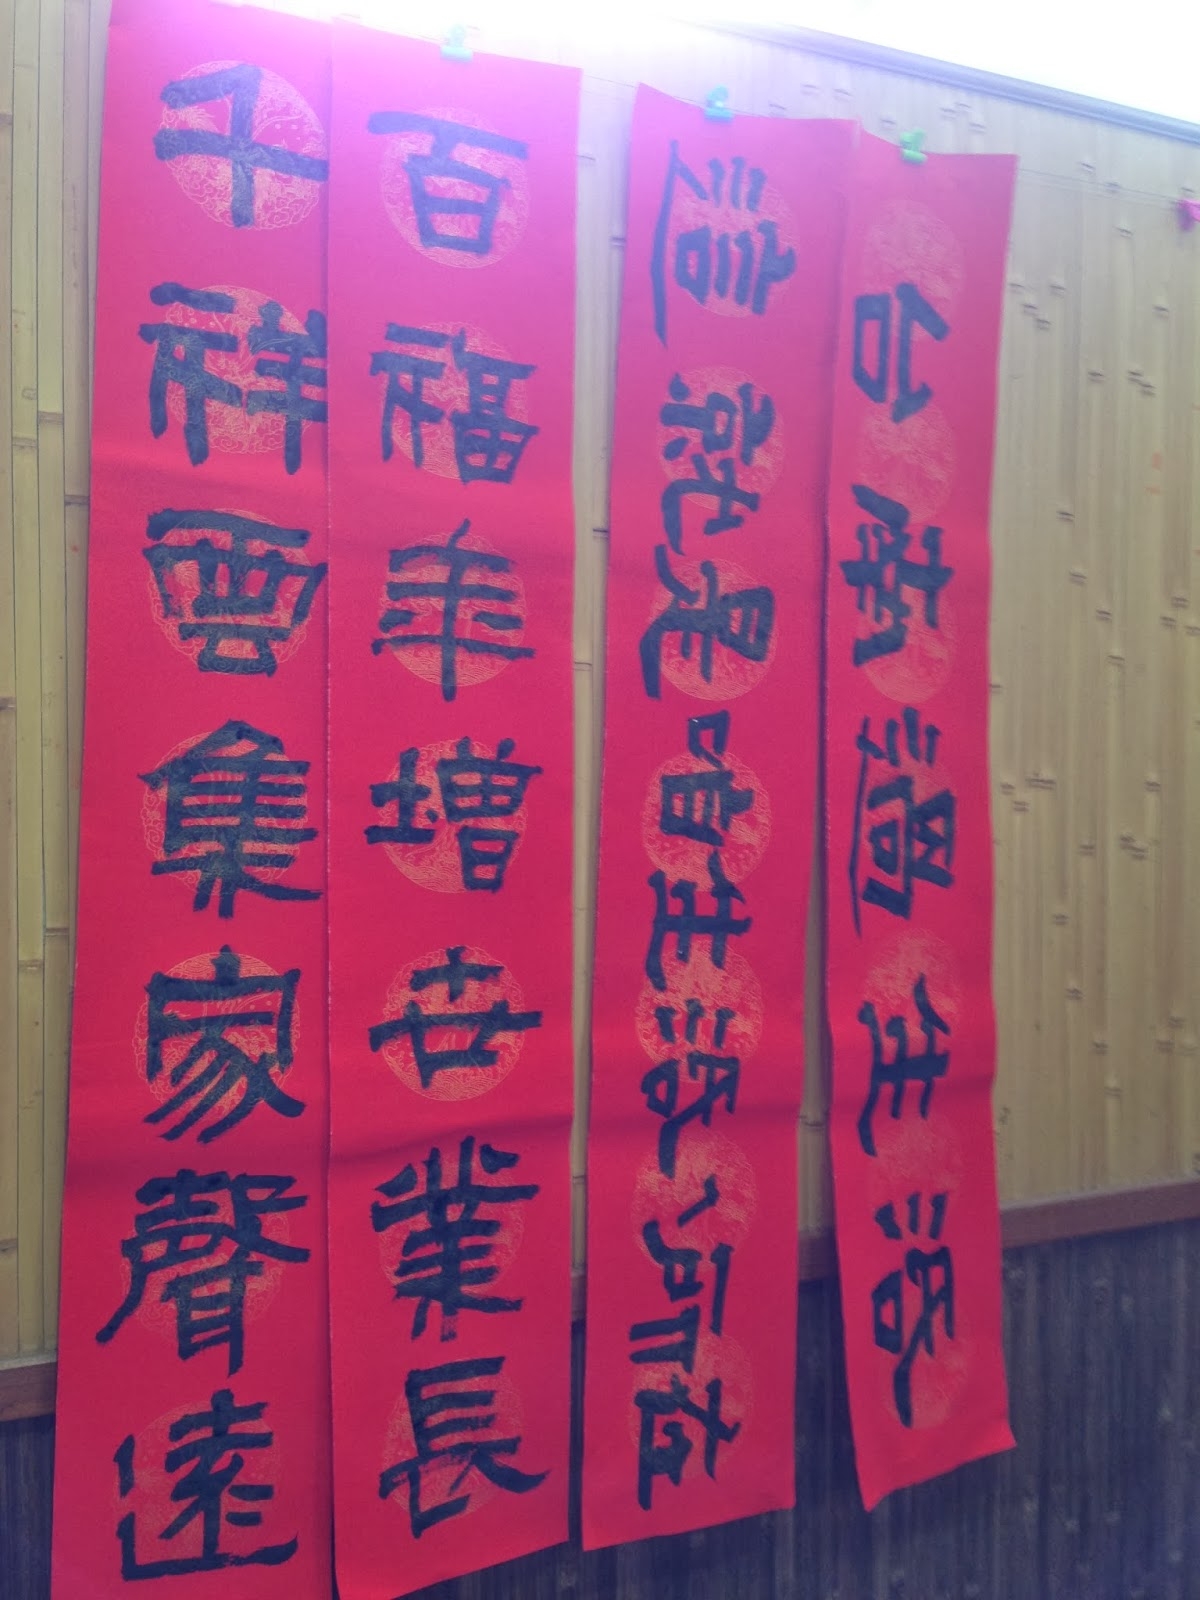 千祥雲集家聲遠
百福年增世業長
這就是咱生活ㄟ所在
台南過生活